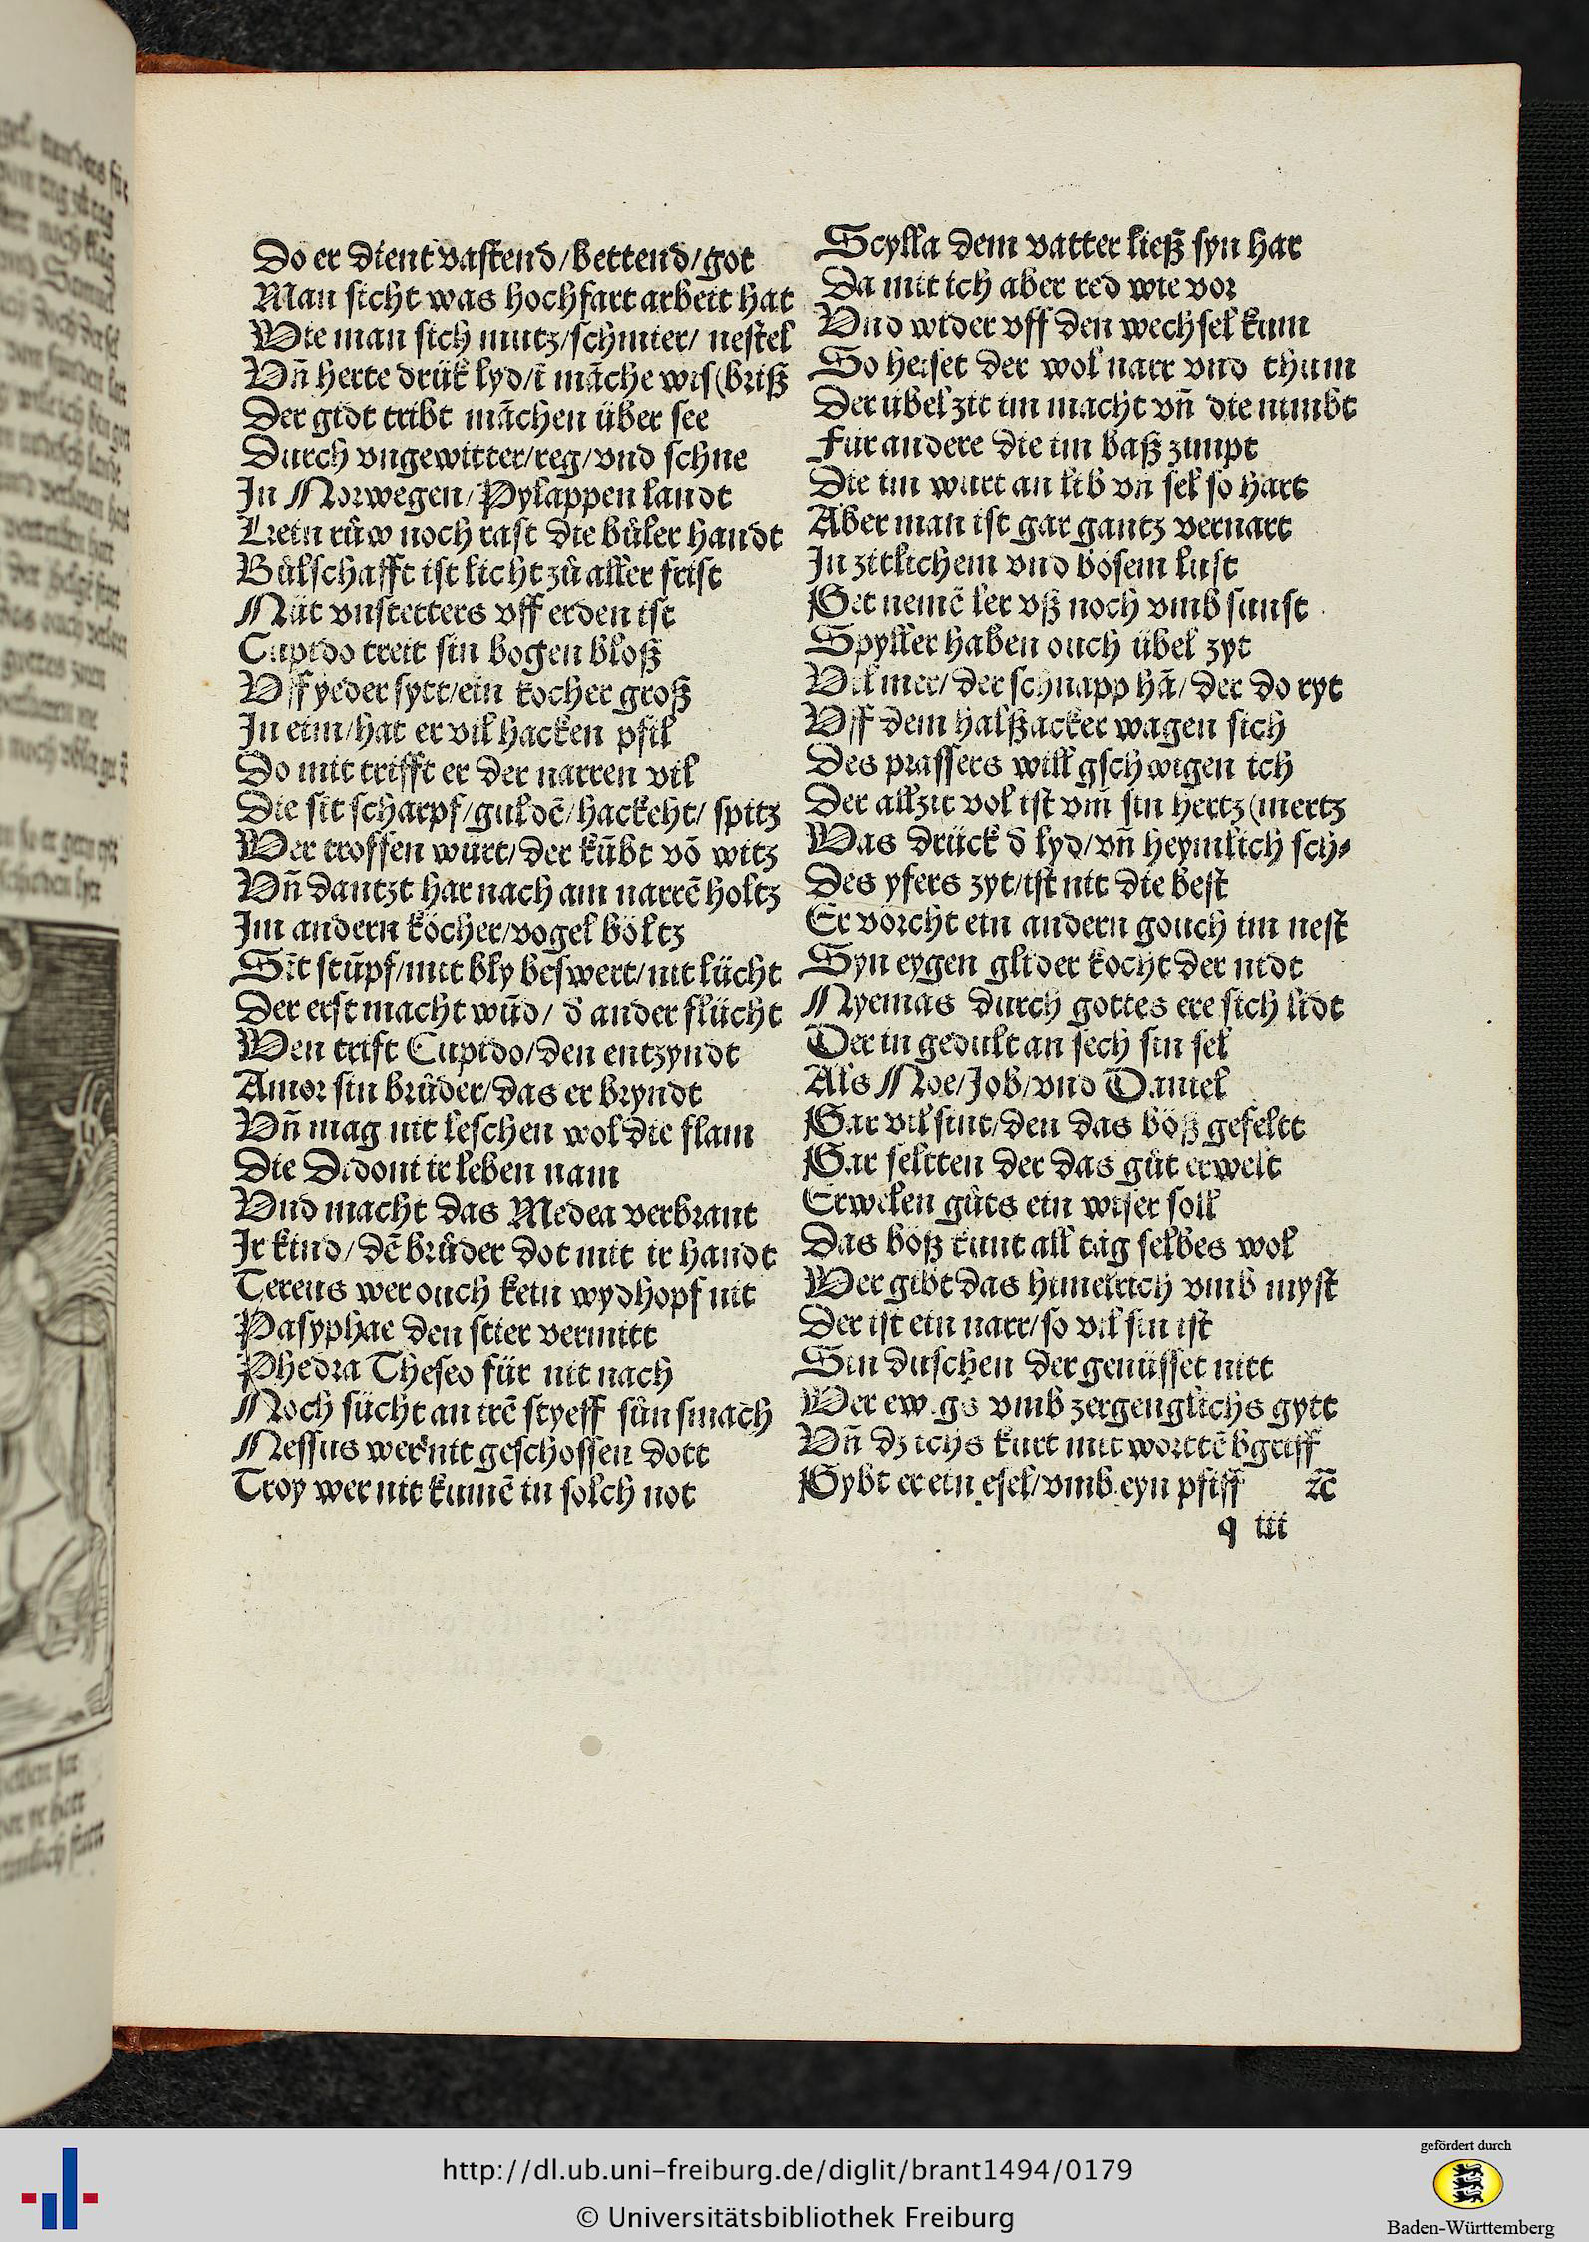 Do er dient vastend/bettend/got
Man sicht was hochfart arbeit hat
Wie man sich mutz/schmier/ nestel
Vñ herte drück lyd/ī mãche wis(briß
Der gidt tribt mãchen über see
Durch vngewitter/reg/vnd schne
In Norwegen/Pylappen landt
Kein růw noch rast die bůler handt
Bůlschafft ist licht zů aller frist
Nüt vnstetters vff erden ist
Cupido treit sin bogen bloß
Vff yeder sytt/ein kocher groß
In eim/hat er vil hacken pfil
Do mit trifft er der narren vil
Die sit scharpf/guldẽ/hackeht/ spitz
Wer troffen würt/der kũbt võ witz
Vñ dantzt har nach am narrẽ holtz
Im andern köcher/vogel böltz
Sĩt stũpf/mit bly beswert/nit lücht
Der erst macht wũd/ d̄ ander flücht
Wen trift Cupido/den entzyndt
Amor sin brůder/das er bryndt
Vñ mag nit leschen wol die flam
Die Didoni ir leben nam
Vnd macht das Medea verbrant
Ir kind/dẽ brůder dot mit ir handt
Tereus wer ouch kein wydhopf nit
Pasyphae den stier vermitt
Phedra Theseo für nit nach
Noch sücht an irẽ styeff sůn smach
Nessus wer nit geschossen dott
Troy wer nit kumẽ in solch not
Scylla dem vatter ließ syn har
Da mit ich aber red wie vor
Vnd wider vff den wechsel kum
So heiset der wol narr vnd thum
Der übel zit im macht vñ die nimbt
Für andere die im baß zimpt
Die im wurt an lib vñ sel so hart
Aber man ist gar gantz vernart
In zitlichem vnd bösem lust
Get nemẽ ler vß noch vmb sunst
Spyller haben ouch übel zyt
Vil mer/ der schnapp hã/ der do ryt
Vff dem halßacker wagen sich
Des prassers will gschwigen ich
Der allzit vol ist vm̄ sin hertz(mertz
Was drück d̄ lyd/vñ heymlich sch⸗
Des yfers zyt/ist nit die best
Er vörcht ein andern gouch im nest
Syn eygen glider kocht der nidt
Nyemas durch gottes ere sich lidt
Der in gedult an sech sin sel
Als Noe/Job/vnd Daniel
Gar vil sint/den das böß gefeltt
Gar seltten der das gůt erwelt
Erwelen gůts ein wiser soll
Das böß kunt all täg selbes wol
Wer gibt das himelrich vmb myst
Der ist ein narr/so vil sin ist
Sin duschen der genüsset nitt
Wer ewigs vmb zergenglichs gytt
Vñ dz ichs kurt mit worttẽ bgriff
Gybt er ein esel/vmb eyn pfiff ꝛc̄
q iii
http://dl.ub.uni-freiburg.de/diglit/brant1494/0179
© Universitätsbibliothek Freiburg
gefördert durch
Baden-Württemberg